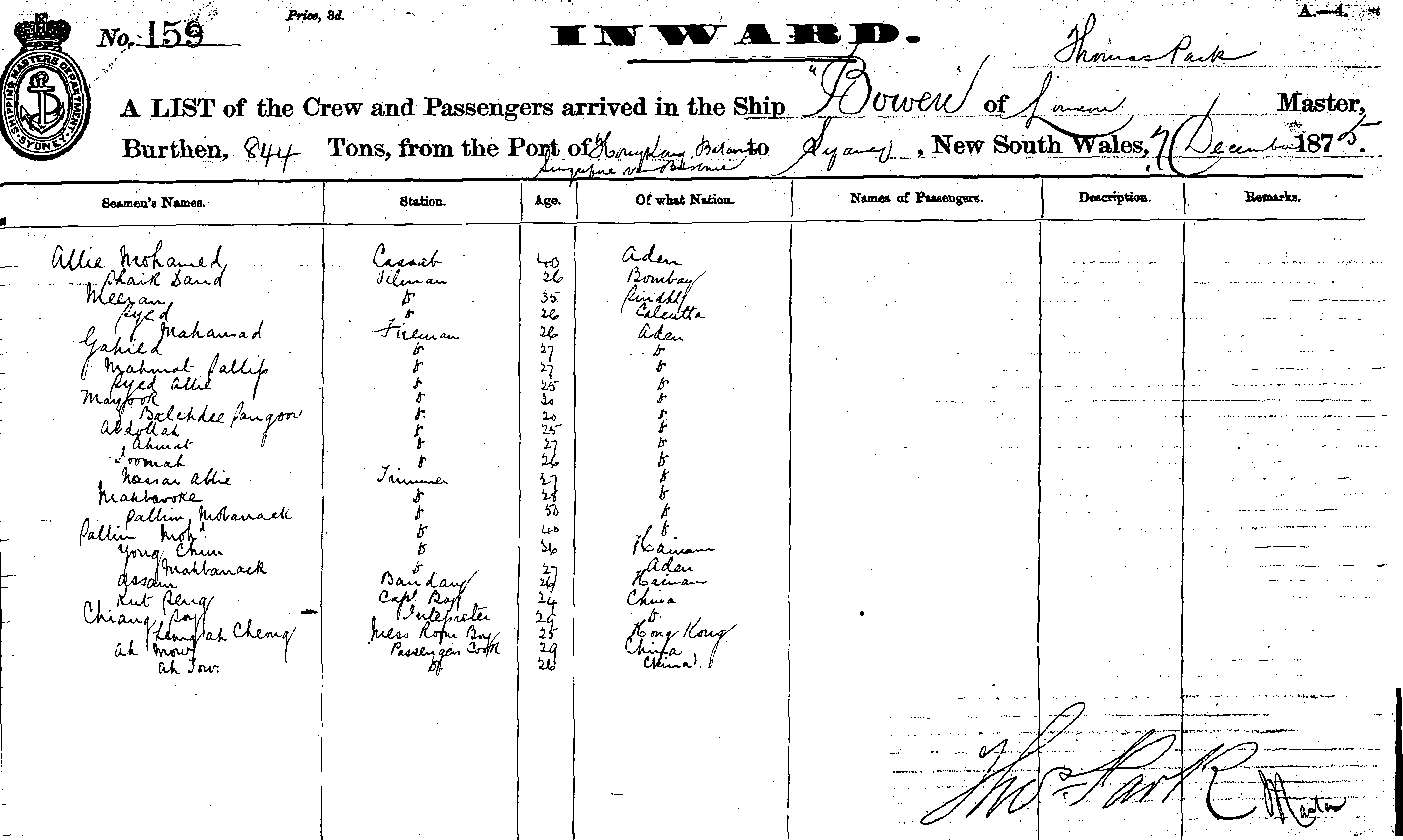 No. 159 Price, 3d. INWARD. A.—4.
SHIPPING MASTERS DEPARTMENT SYDNEY
Thomas Park
A LIST of the Crew and Passengers arrived in the Ship "Bowen" of London Master,
Burthen, 844 Tons, from the Port of Hongkong to Sydney, New South Wales, 7 December 1875.
Singapore via
Seamen's Names. Station. Age. Of what Nation. Names of Passengers. Description. Remarks.
Allie Mohamed Cassab 40 Aden
Shaik Daud 26 Bombay
Meezan Do 35
Syed Do 26 Calcutta
Mahamad Fireman 26 Aden
Do 27 Do
Mahmat Do 27 Do
Syed Allie Do 25 Do
Do Do
Do 20 Do
Abdollah Do 25 Do
Ahmat Do 27 Do
Joomah Do 26 Do
Nassar Allie Trimmer 27 Do
Do 28 Do
Do 50 Do
Mohd Do 40 Do
Yong Chun Do 26 Hainam
Do 27 Aden
Assam 26 Hainam
Capt Boy 24 China
Chiang Interpreter 29 Do
ah Cheong Mess Room Boy 25 Hong Kong
Ah Mow Passenger Cook 29 China
Ah Tow. Do 26 China
Thos Park Master